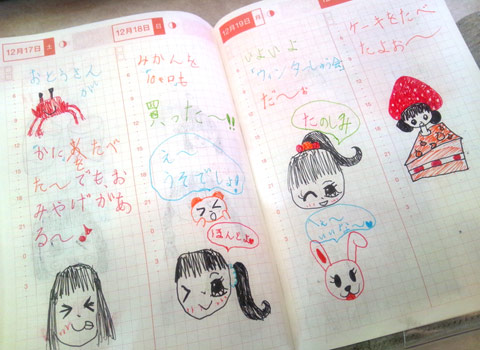 12月17日 土
おとうさん
が
かに を たべ
た〜 でも、お
みやげがあ
る〜♪
12月18日 日
みかんを
買った〜!!
え〜
うそでしょ!
ほんとよ♥
12月19日 月
いよいよ
ウィンタールの会
だ〜
たのしみ
いいな〜♥
ケーキをたべ
たよお〜